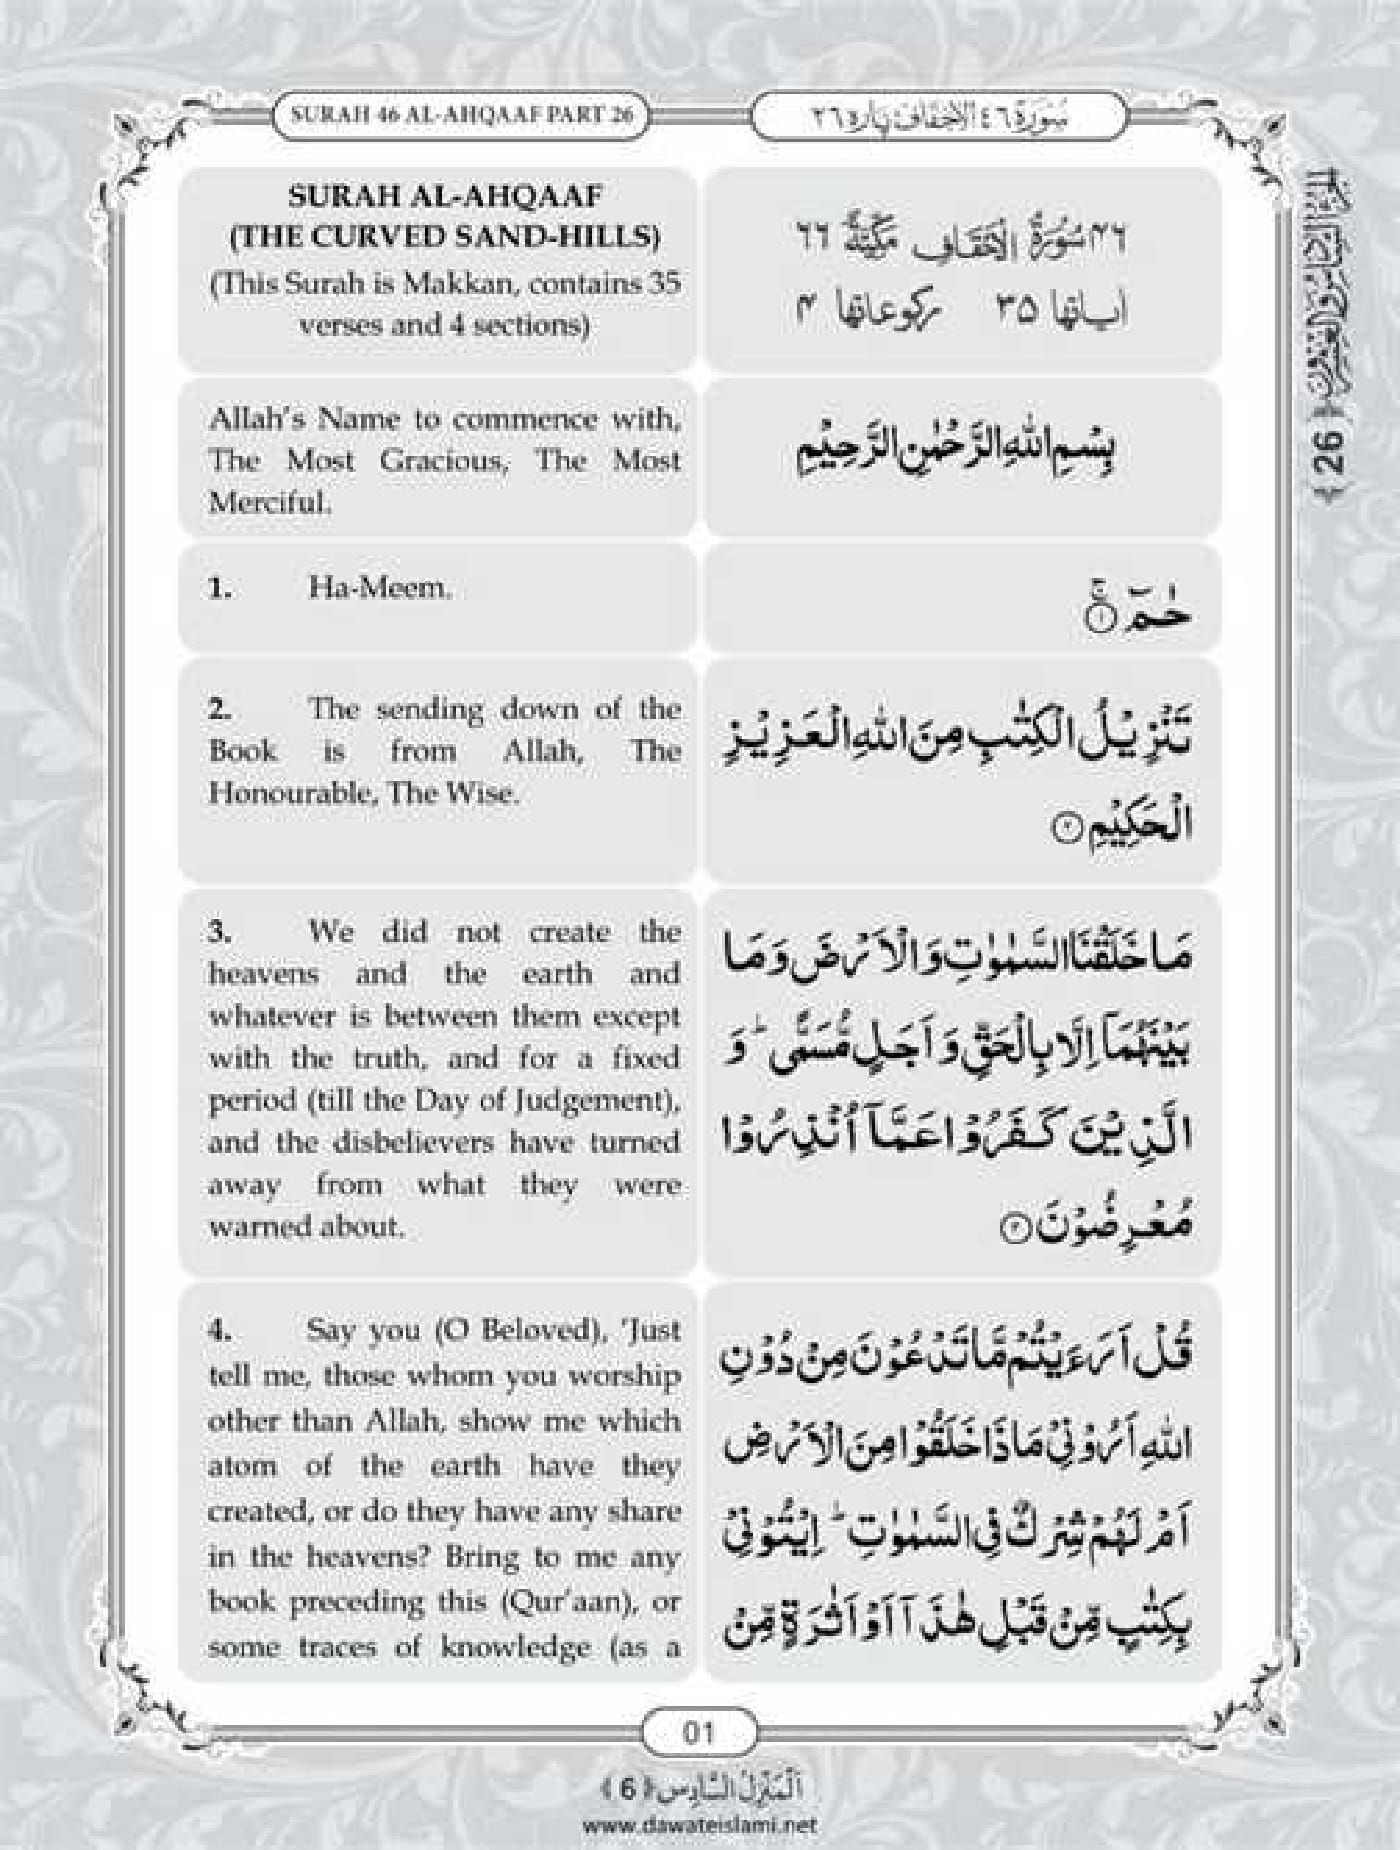 SURAH 46 AL-AHQAAF PART 26
سُورَة ٤٦ الاحقاف پاره ٢٦
SURAH AL-AHQAAF
(THE CURVED SAND-HILLS)
(This Surah is Makkan, contains 35
verses and 4 sections)
٤٦ سُوْرَةُ الْاَحْقَافِ مَكِّيَّةٌ ٦٦
اٰیاتها ۳۵ رکوعاتها ۴
Allah's Name to commence with,
The Most Gracious, The Most
Merciful.
بِسْمِ اللّٰهِ الرَّحْمٰنِ الرَّحِیْمِ
1. Ha-Meem.
حٰمٓ ۚ﴿۱﴾
2. The sending down of the
Book is from Allah, The
Honourable, The Wise.
تَنْزِیْلُ الْكِتٰبِ مِنَ اللّٰهِ الْعَزِیْزِ
الْحَكِیْمِ ﴿۲﴾
3. We did not create the
heavens and the earth and
whatever is between them except
with the truth, and for a fixed
period (till the Day of Judgement),
and the disbelievers have turned
away from what they were
warned about.
مَا خَلَقْنَا السَّمٰوٰتِ وَ الْاَرْضَ وَ مَا
بَیْنَهُمَاۤ اِلَّا بِالْحَقِّ وَ اَجَلٍ مُّسَمًّی ؕ وَ
الَّذِیْنَ كَفَرُوْا عَمَّاۤ اُنْذِرُوْا
مُعْرِضُوْنَ ﴿۳﴾
4. Say you (O Beloved), ‘Just
tell me, those whom you worship
other than Allah, show me which
atom of the earth have they
created, or do they have any share
in the heavens? Bring to me any
book preceding this (Qur’aan), or
some traces of knowledge (as a
قُلْ اَرَءَیْتُمْ مَّا تَدْعُوْنَ مِنْ دُوْنِ
اللّٰهِ اَرُوْنِیْ مَاذَا خَلَقُوْا مِنَ الْاَرْضِ
اَمْ لَهُمْ شِرْكٌ فِی السَّمٰوٰتِ ؕ اِیْتُوْنِیْ
بِكِتٰبٍ مِّنْ قَبْلِ هٰذَاۤ اَوْ اَثٰرَةٍ مِّنْ
الجزء السادس والعشرون ﴿26﴾
01
اَلْمَنْزِلُ السَّادِس ﴿6﴾
www.dawateislami.net